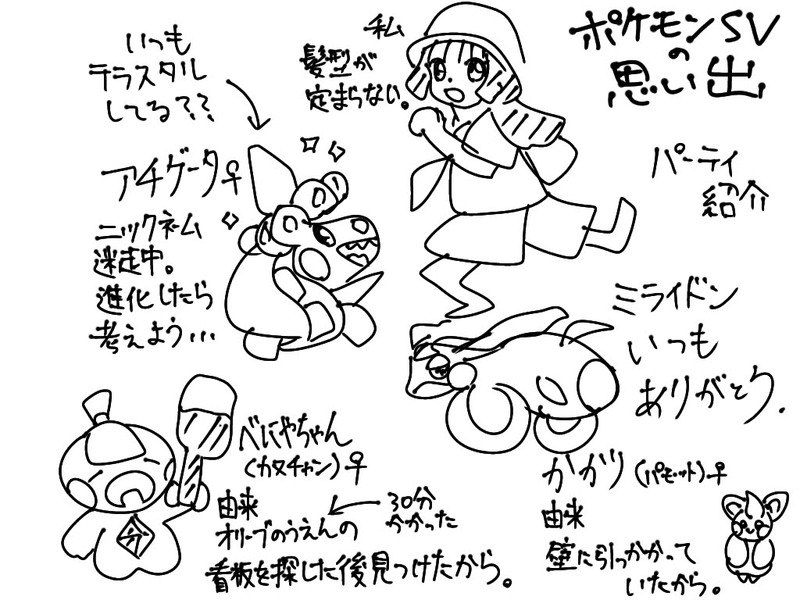 ポケモンSV
の
思い出
パーティ
紹介
私
髪型が
定まらない。
いつも
テラスタル
してる??
アチゲータ♀
ニックネーム
迷走中。
進化したら
考えよう...
ミライドン
いつも
ありがとう.
べにやちゃん
(カヌチャン)♀
由来
オリーブのうえんの
看板を探した後見つけたから。
30分
かかった
かがり(パモット)♀
由来
壁に引っかかって
いたから。